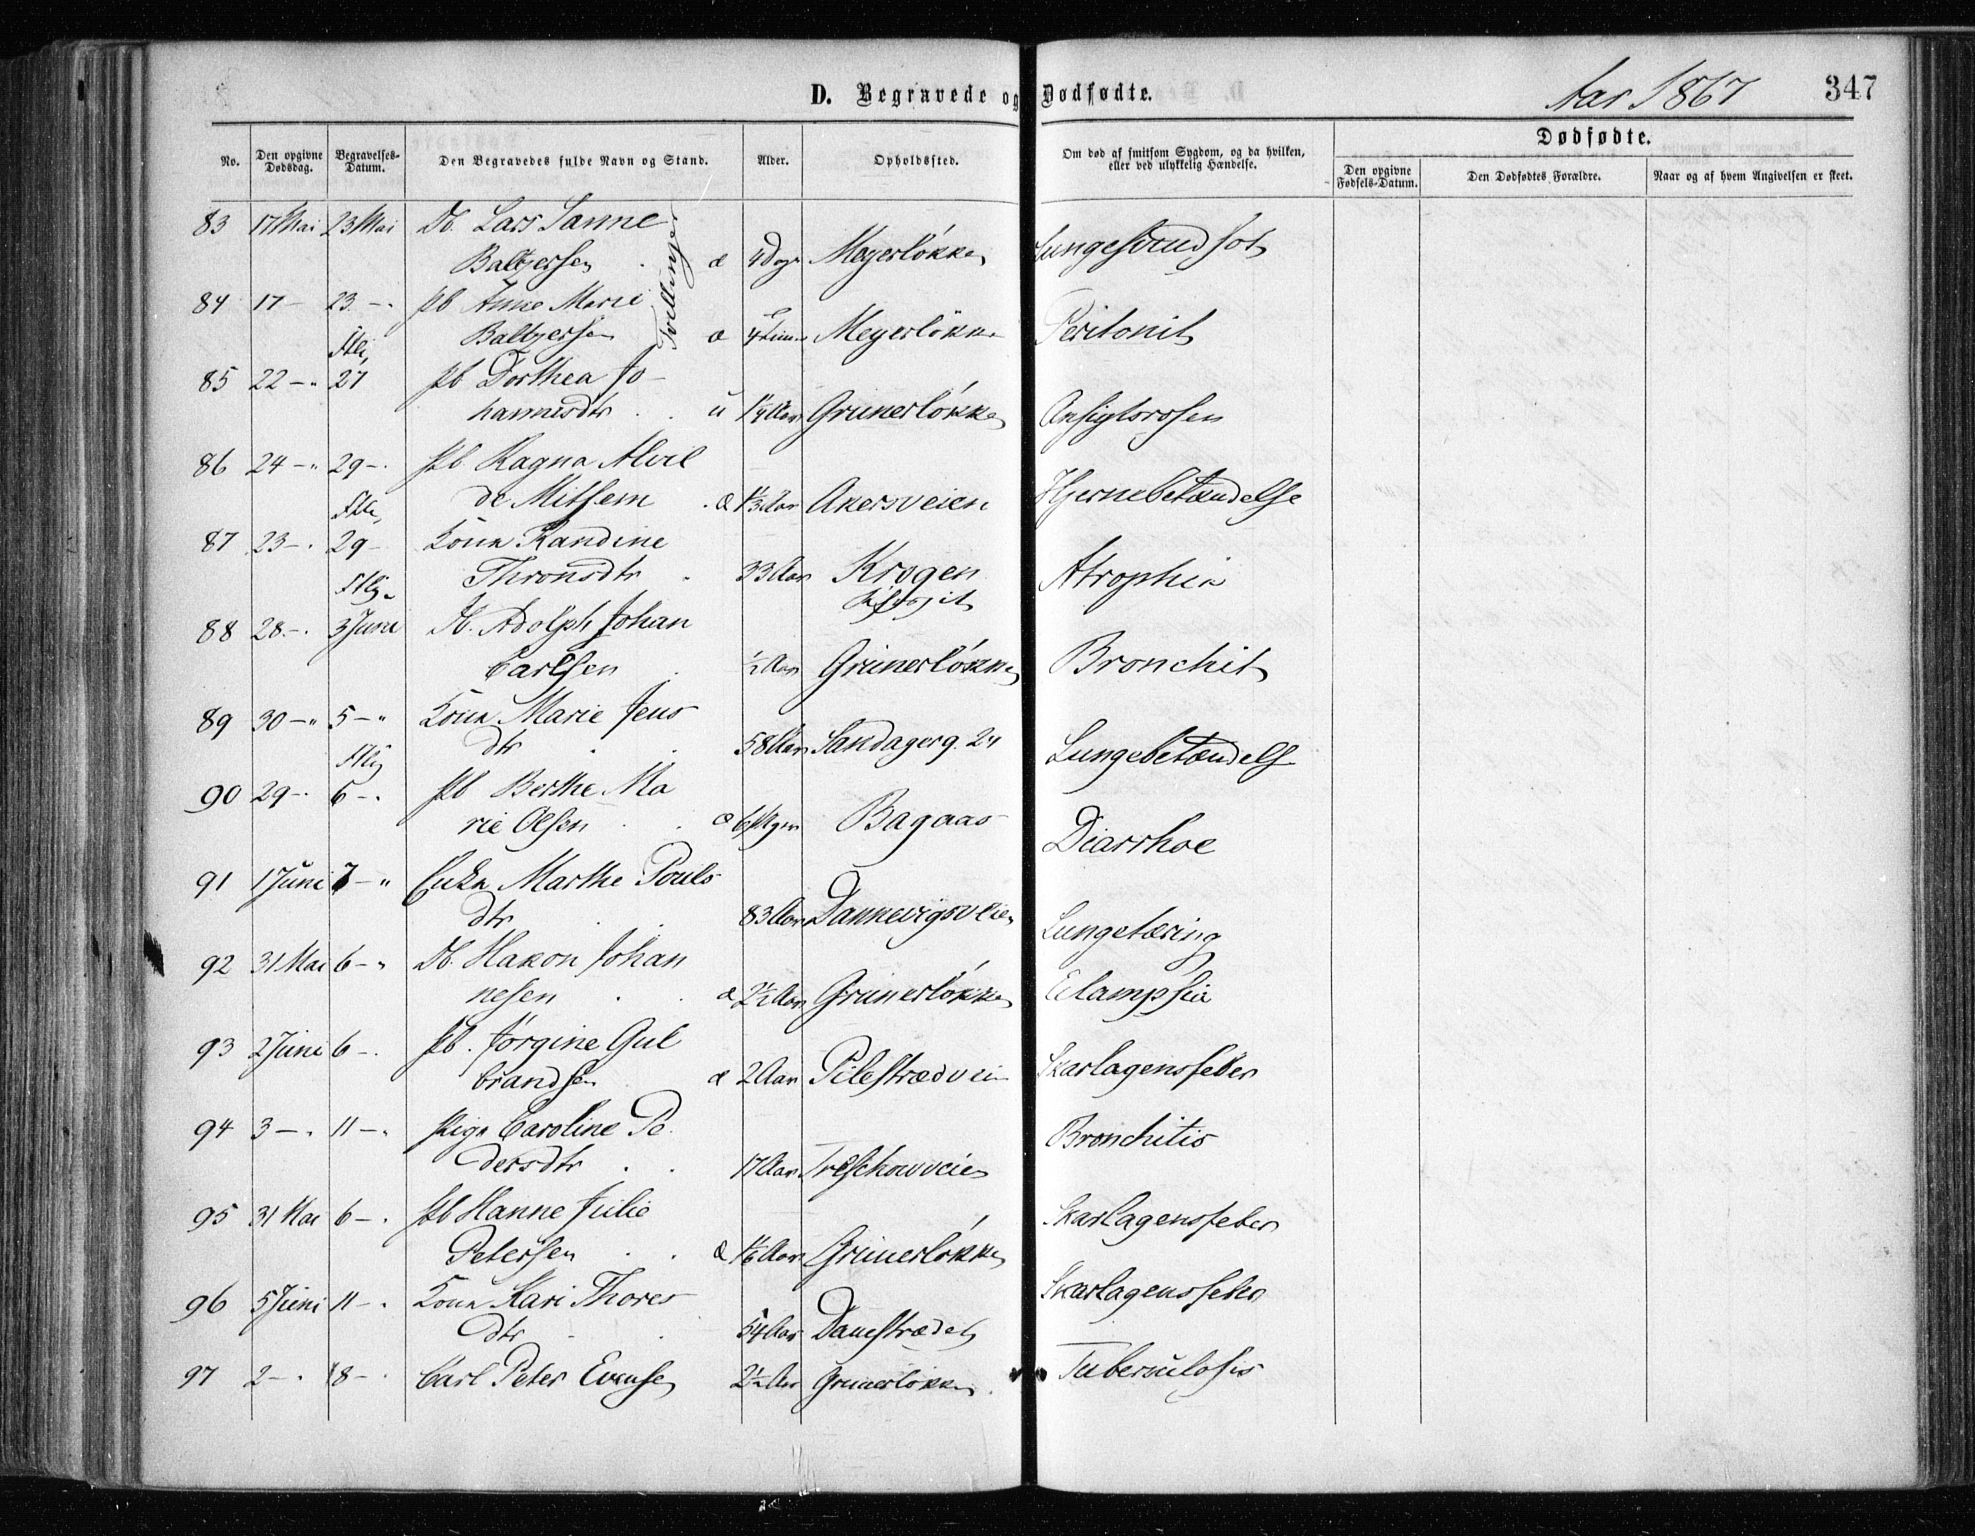 D. Begravede og Dødfødte.
Aar 1867
347
No.
Den opgivne Dødsdag.
Begravelses-Datum.
Den Begravedes fulde Navn og Stand.
Alder.
Opholdssted.
Om død af smitsom Sygdom, og da hvilken, eller ved ulykkelig Hændelse.
Dødfødte.
Den opgivne Fødsels-Datum.
Den Dødfødtes Forældre.
Naar og af hvem Angivelsen er skeet.
83 17 Mai 23 Mai Db. Lars Sanne
Baltzersen æ 4 Dage Meyerløkken
Tvillinger
84 17 — 23 — Pb Anne Marie
Baltzersen æ 4 Meyerløkken Peritonit
85 22 — 27 Pb Dorthea Jo-
hannesdtr u 1¼ Aar Grunerløkken Ansigtsrosen
86 24 — 29 — Pb. Ragna Alvil
de Mithem æ 1⅓ Aar Akersveien Hjernebetændelse
87 23 — 29 — Kona Randine
Thronsdtr 33 Aar Krogen Atrophia
88 28 — 3 Juni Db. Adolph Johan
Carlsen ½ Aar Grunerløkken Bronchit
89 30 — 5 — Kona Marie Jens
dtr 58 Aar Sandagerg. 24 Lungebetændelse
90 29 — 6 — Pb Berthe Ma
rie Olsen Bagaas Diarrhoe
91 1 Juni 7 — Enka Marthe Pouls
dtr 83 Aar Dannevigsveien Lungetæring
92 31 Mai 6 — Db. Hakon Johan
nesen æ 2½ Aar Grunerløkken Eclampsia
93 2 Juni 6 — Pb. Jørgine Gul
brandsen æ 2 Aar Pilestrædveien Skarlagensfeber
94 3 — 11 — Pige Caroline Pe
dersdtr 17 Aar Treschowveien Bronchitis
95 31 Mai 6 — Pb Hanne Julie
Petersen æ 1⅙ Aar Grunerløkken Skarlagensfeber
96 5 Juni 11 — Kona Kari Thores
dtr 54 Aar Danestrædet Skarlagensfeber
97 2 — 8 — Carl Peter Evensen 2½ Aar Grunerløkken Tuberculosis